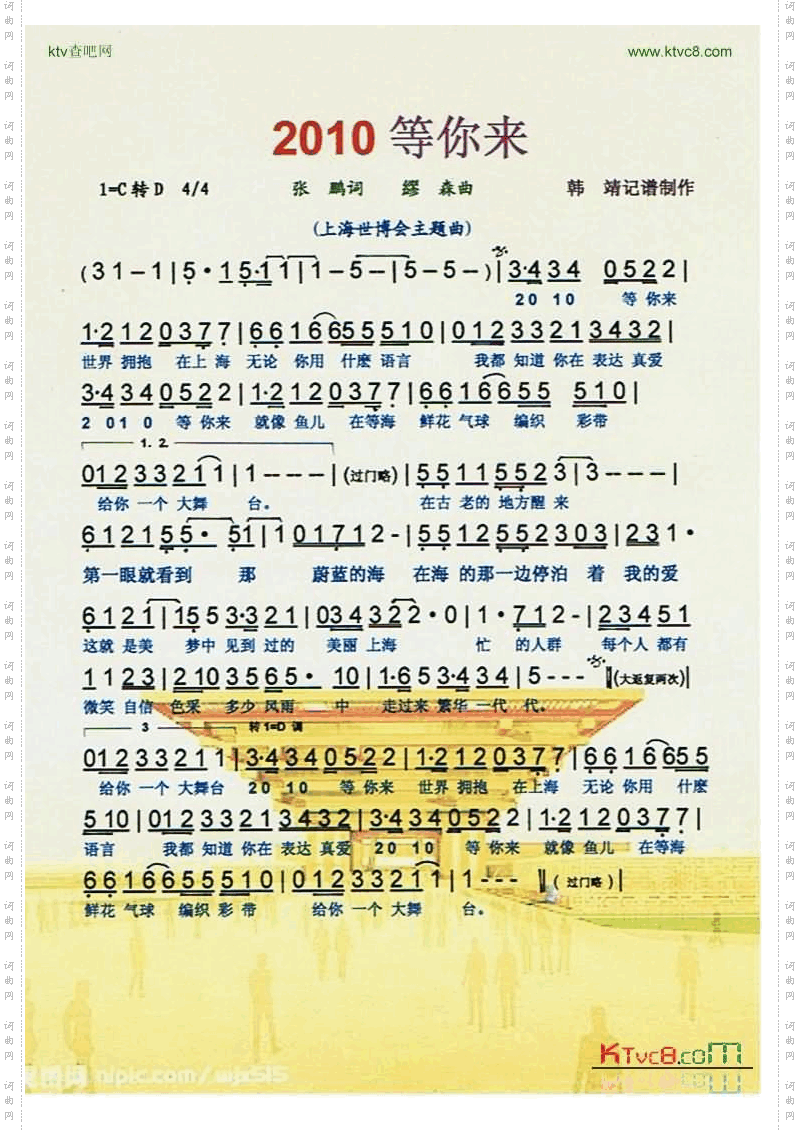 ktv查吧网 www.ktvc8.com
2010 等你来
1=C 转 D 4/4 张 鹏词 缪 森曲 韩 靖记谱制作
(上海世博会主题曲)
(3 1 – 1 | 5 · 1 5·1 1 | 1 – 5 – | 5 – 5 – ) | 3·4 3 4 0 5 2 2 |
20 10 等 你来
1·2 1 2 0 3 7 7 | 6 6 1 6 6 5 5 5 1 0 | 0 1 2 3 3 2 1 3 4 3 2 |
世界 拥抱 在上 海 无论 你用 什麽 语言 我都 知道 你在 表达 真爱
3·4 3 4 0 5 2 2 | 1·2 1 2 0 3 7 7 | 6 6 1 6 6 5 5 5 1 0 |
2 01 0 等 你来 就像 鱼儿 在等海 鲜花 气球 编织 彩带
1. 2.
0 1 2 3 3 2 1 1 | 1 – – – | (过门略) | 5 5 1 1 5 5 2 3 | 3 – – – |
给你 一个 大舞 台。 在古 老的 地方醒 来
6 1 2 1 5 5· 5 1 | 1 0 1 7 1 2 - | 5 5 1 2 5 5 2 3 0 3 | 2 3 1 ·
第一眼就看到 那 蔚蓝的海 在海 的那一边停泊 着 我的爱
6 1 2 1 | 1 5 5 3·3 2 1 | 0 3 4 3 2 2 · 0 | 1 · 7 1 2 - | 2 3 4 5 1
这就 是美 梦中 见到 过的 美丽 上海 忙 的人群 每个人 都有
1 1 2 3 | 2 1 0 3 5 6 5 · 1 0 | 1·6 5 3·4 3 4 | 5 - - - ‖(大返复两次)|
微笑 自信 色采 多少 风雨 中 走过来 繁华 一代 代。
3 转 1=D 调
0 1 2 3 3 2 1 1 | 3·4 3 4 0 5 2 2 | 1·2 1 2 0 3 7 7 | 6 6 1 6 6 5 5
给你 一个 大舞台 20 10 等 你来 世界 拥抱 在上海 无论 你用 什麽
5 1 0 | 0 1 2 3 3 2 1 3 4 3 2 | 3·4 3 4 0 5 2 2 | 1·2 1 2 0 3 7 7 |
语言 我都 知道 你在 表达 真爱 20 10 等 你来 就像 鱼儿 在等海
6 6 1 6 6 5 5 5 1 0 | 0 1 2 3 3 2 1 1 | 1 - - - ‖( 过门略 )|
鲜花 气球 编织 彩 带 给你 一个 大舞 台。
KTvc8.com
nipic.com/wjx515
词曲网